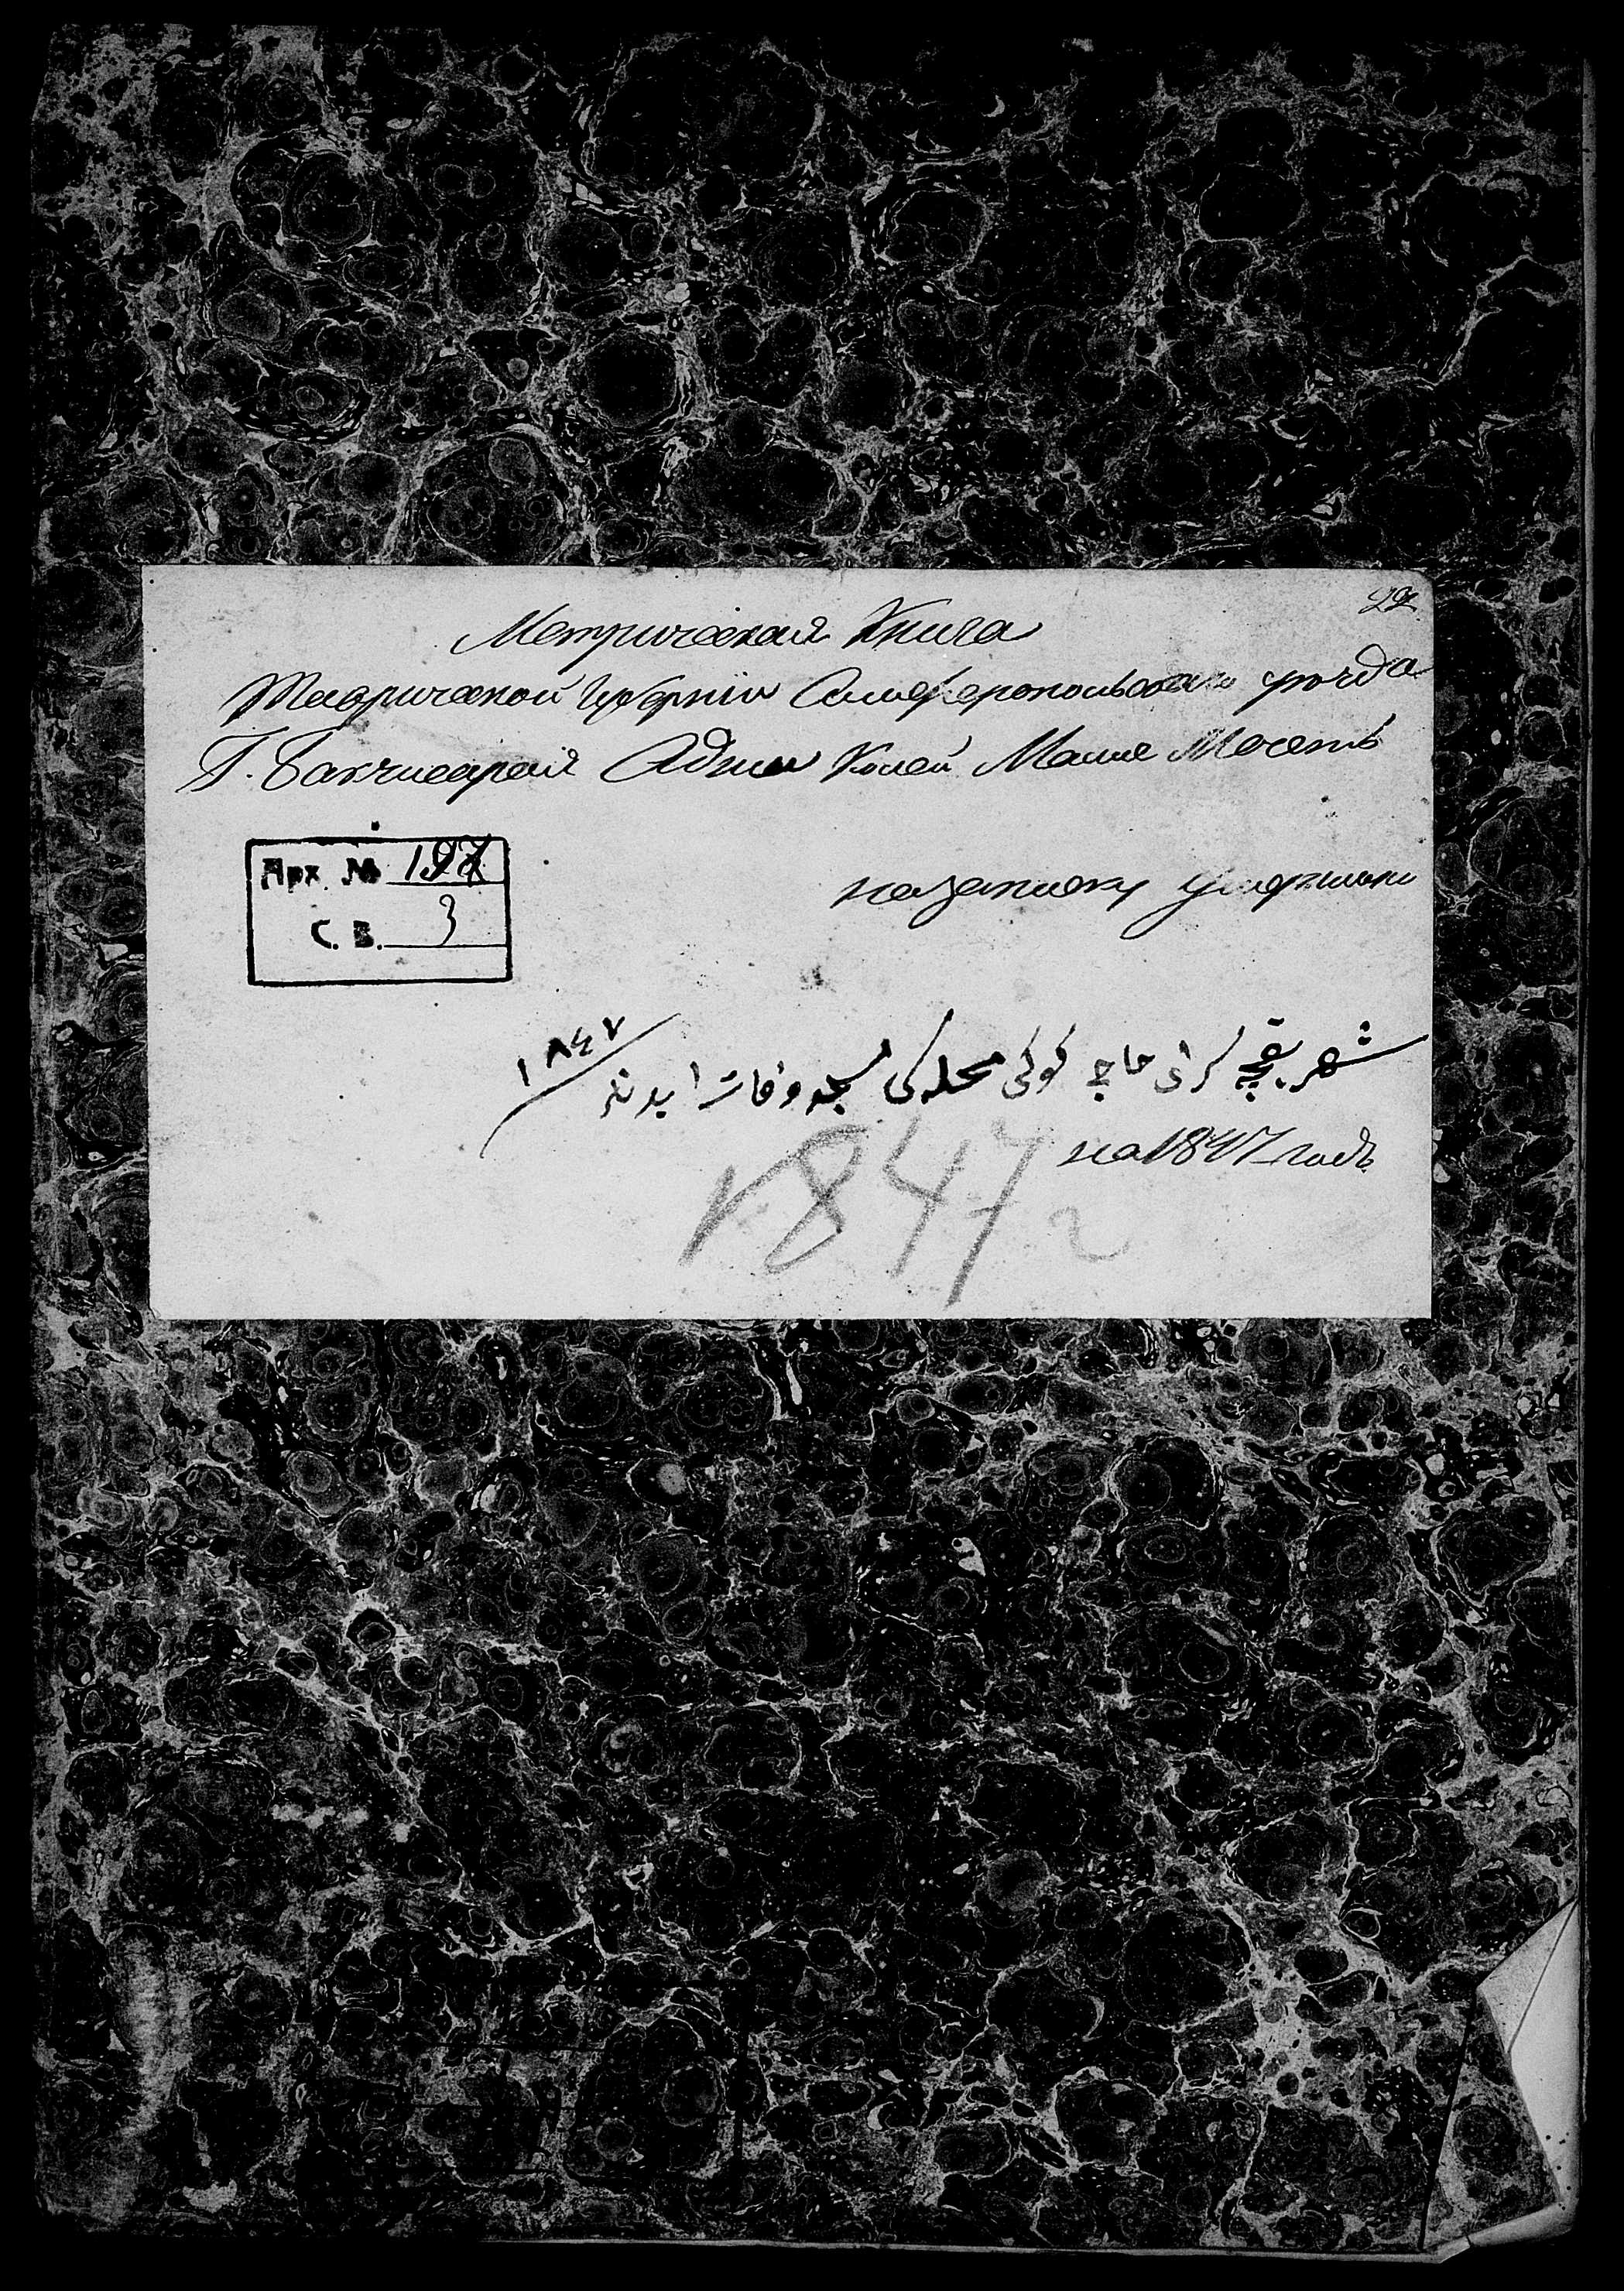 22
Метрическая Книга
Таврической Губернии Симферопольского уезда
Г. Бакчисарая Аджи Колей Малле Мечеть
Арх. № 197
С. В. 3
на записку умершихъ
شهر بقچه سرای حاجی كوكی محله‌سی مسجد وفات ایدنلر
١٨٤٧
на 1847 годъ
1847 г